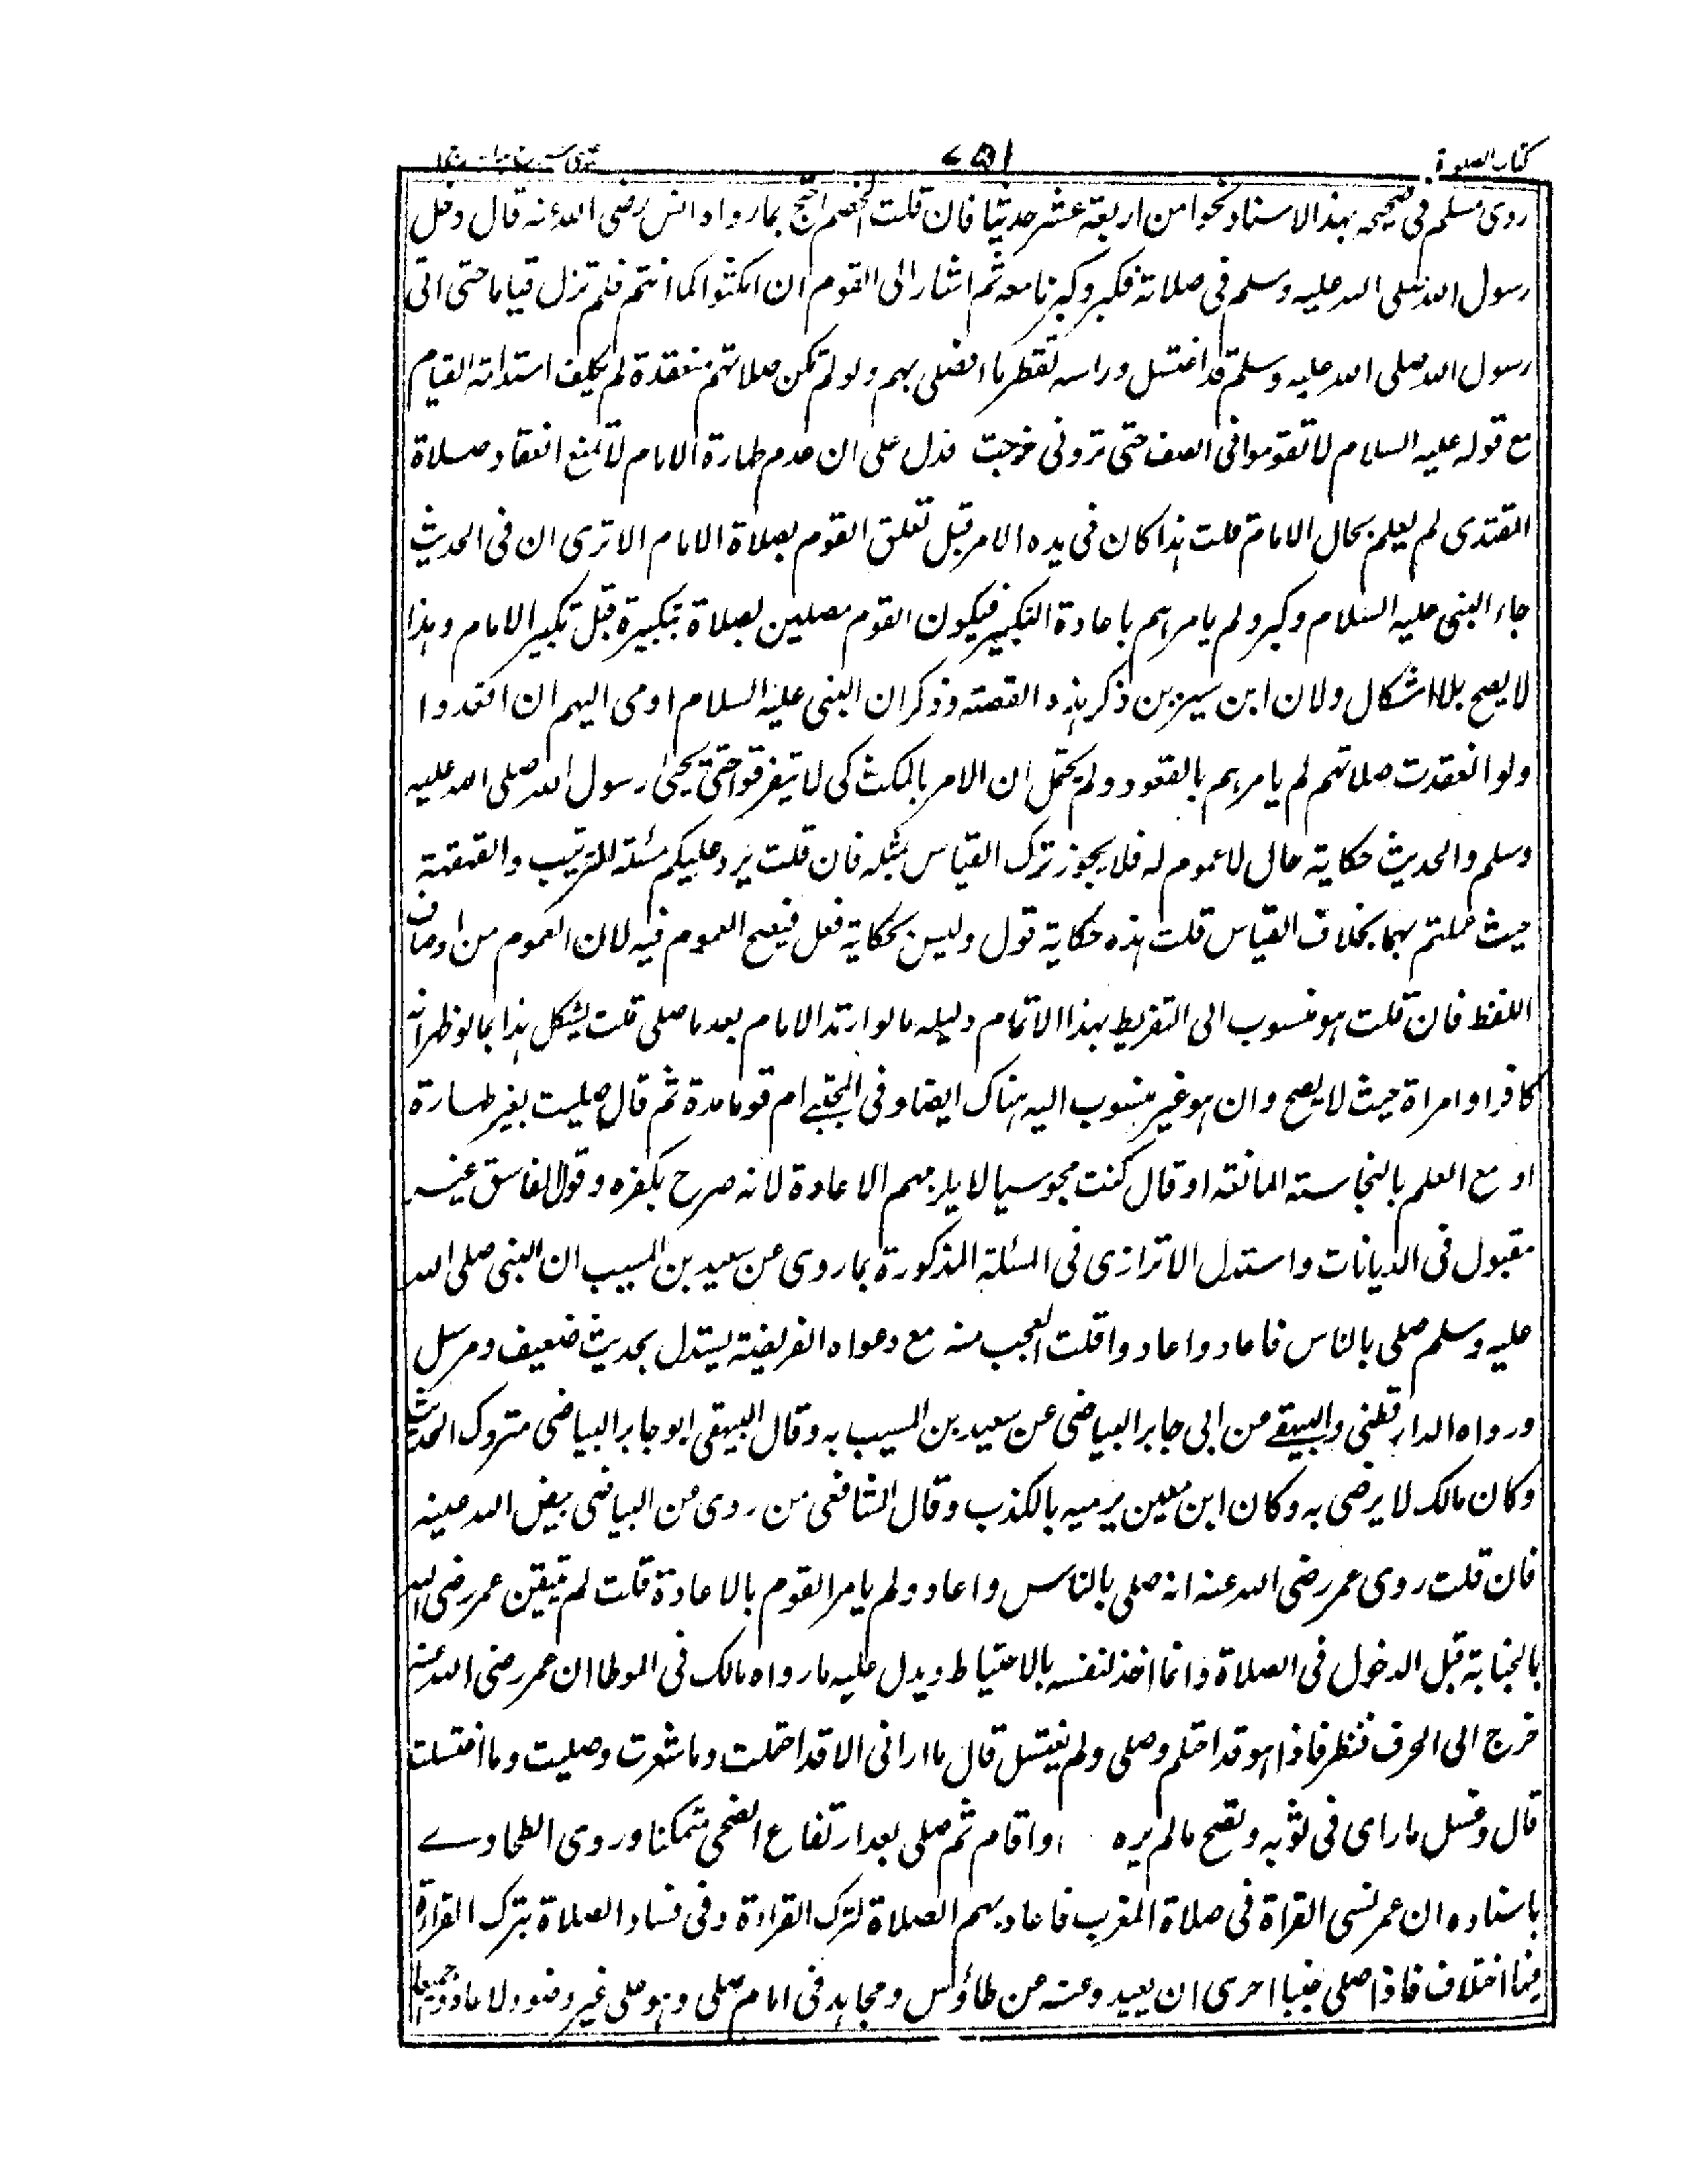 كتاب الصلوة
٧٥١
روى مسلم فى صحيحه بهذا الاسناد نحوا من اربعة عشر حديثا فان قلت الخصم احتج بمارواه انس رضى الله عنه قال دخل
رسول الله صلى الله عليه وسلم فى صلاته فكبر وكبرنا معه ثم اشار الى القوم ان امكثوا كما انتم فلم نزل قياما حتى اتى
رسول الله صلى الله عليه وسلم قد اغتسل وراسه تقطر ماء فصلى بهم ولو لم تكن صلاتهم منعقدة لم يكلف استدامة القيام
مع قوله عليه السلام لا تقوموا فى الصف حتى ترونى خرجت فدل على ان عدم طهارة الامام لا تمنع انعقاد صلاة
المقتدى لم يعلم بحال الامام قلت هذا كان فى بدء الامر قبل تعلق القوم بصلاة الامام الا ترى ان فى الحديث
جاء النبى عليه السلام وكبر ولم يامرهم باعادة التكبير فيكون القوم مصلين بصلاة بتكبيرة قبل تكبير الامام وهذا
لا يصح بلا اشكال ولان ابن سيرين ذكر هذه القصة وذكر ان النبى عليه السلام اومى اليهم ان اقعدوا
ولو انعقدت صلاتهم لم يامرهم بالقعود ولم يحتمل ان الامر بالمكث كى لا يتفرقوا حتى يجئ رسول الله صلى الله عليه
وسلم والحديث حكاية حال لا عموم له فلا يجوز ترك القياس بمثله فان قلت يرد عليكم مسئلة الترتيب والقهقهة
حيث عملتم بهما بخلاف القياس قلت هذه حكاية قول وليس بحكاية فعل فيصح العموم فيه لان العموم من اوصاف
اللفظ فان قلت هو منسوب الى التفريط بهذا الاتمام دليله ما لو ارتد الامام بعد ما صلى قلت يشكل هذا بما لو ظهر انه
كافر او امراة حيث لا يصح وان هو غير منسوب اليه هناك ايضا وفى المجتبے ام قوما مدة ثم قال صليت بغير طهارة
او مع العلم بالنجاسة المانعة او قال كنت مجوسيا لا يلزمهم الاعادة لانه صرح بكفره وقول الفاسق غير
مقبول فى الديانات واستدل الاترازى فى المسئلة المذكورة بما روى عن سعيد بن المسيب ان النبى صلى الله
عليه وسلم صلى بالناس فاعاد واعادوا قلت العجب منه مع دعواه الفريضة يستدل بحديث ضعيف ومرسل
ورواه الدارقطنى والبيهقے من ابى جابر البياضى عن سعيد بن المسيب به وقال البيهقى ابو جابر البياضى متروك الحديث
وكان مالك لا يرضى به وكان ابن معين يرميه بالكذب وقال الشافعى من روى عن البياضى بيض الله عينه
فان قلت روى عمر رضى الله عنه انه صلى بالناس واعاد ولم يامر القوم بالاعادة قلت لم يتيقن عمر رضى الله
بالجنابة قبل الدخول فى الصلاة وانما اخذ لنفسه بالاحتياط ويدل عليه ما رواه مالك فى الموطا ان عمر رضى الله عنه
خرج الى الجرف فنظر فاذا هو قد احتلم وصلى ولم يغتسل قال ما ارانى الا قد احتملت وما شعرت وصليت وما اغتسلت
قال وغسل ما راى فى ثوبه ونضح ما لم يره واقام ثم صلى بعد ارتفاع الضحى متمكنا وروى الطحاوے
باسناده ان عمر نسى القراة فى صلاة المغرب فاعاد بهم الصلاة لترك القراءة وفى فساد الصلاة بترك القراءة
فيما اختلاف فاذا صلى جنبا احرى ان يعيد وعنه من طاؤس ومجاهد فى امام صلى وهو على غير وضوء